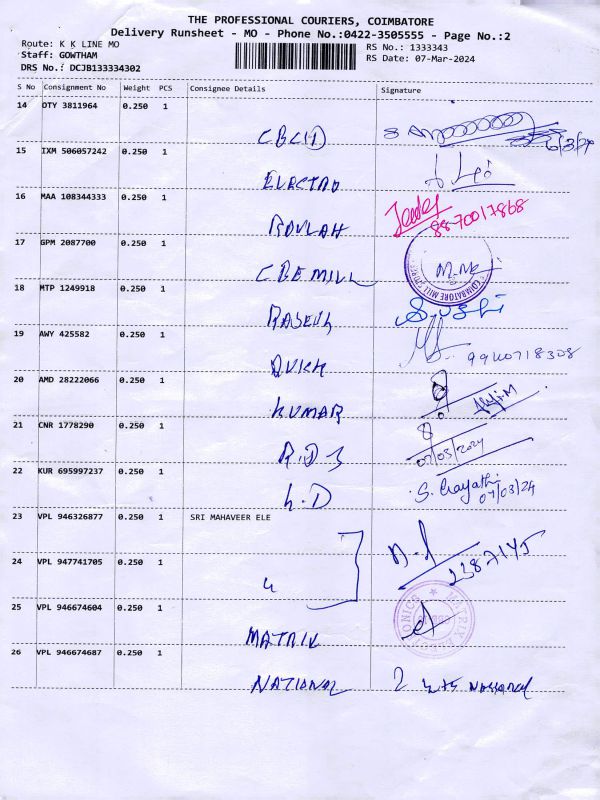 THE PROFESSIONAL COURIERS, COIMBATORE
Delivery Runsheet - MO - Phone No.:0422-3505555 - Page No.:2
Route: K K LINE MO RS No.: 1333343
Staff: GOWTHAM RS Date: 07-Mar-2024
DRS No.: DCJB133334302
S No Consignment No Weight PCS Consignee Details Signature
14 OTY 3811964 0.250 1
15 IXM 506057242 0.250 1
ELECTRO
16 MAA 108344333 0.250 1
8870017868
17 GPM 2087700 0.250 1
CBE MILL
COIMBATORE MILL
18 MTP 1249918 0.250 1
RAJESH
19 AWY 425582 0.250 1
9940718308
20 AMD 28222066 0.250 1
KUMAR
21 CNR 1778290 0.250 1
07/03/2024
22 KUR 695997237 0.250 1
S. Gayathri
07/03/24
23 VPL 946326877 0.250 1 SRI MAHAVEER ELE
24 VPL 947741705 0.250 1
25 VPL 946674604 0.250 1
MATRIX
MATRIX
26 VPL 946674687 0.250 1
NATIONAL